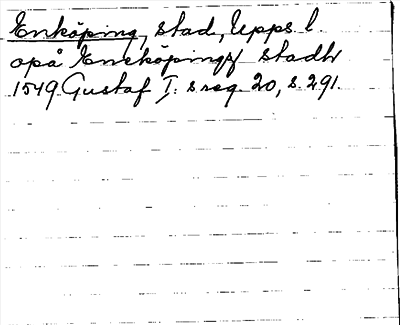 Enköping, stad, Upps. l.
opå Eneköpings stadh
1549 Gustaf I:s reg. 20, s. 291.